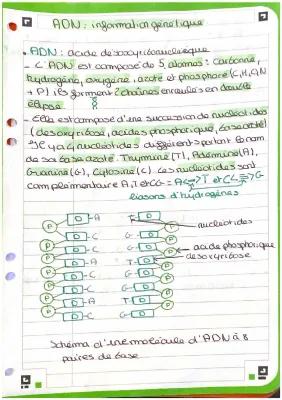 ADN : information génétique
• ADN : acide desoxyribonucléique
- L'ADN est composé de 5 atomes : carbone,
hydrogène, oxygène, azote et phosphore (C,H,O,N
+ P) ils forment 2 chaînes enroulés en double
élipse
- Elle est composé d'une succession de nucléotides
(desoxyribose, acide phosphorique, base azoté)
Il y a 4 nucléotides différents portant le nom
de sa base azoté. Thymine (T), Adémine (A),
Guanine (G), Cytosine (C). Les nucléotides sont
complémentaire A,T et CG = A T et C G
liaisons d'hydrogènes
P D -A T- D P
P D -C G- D P nucléotides
P D -C G- D P acide phosphorique
P D -A T- D P desoxyribose
P D -C G- D P
P D -A T- D P
P D -C G- D P
Schéma d'une molécule d'ADN à 8
paires de base